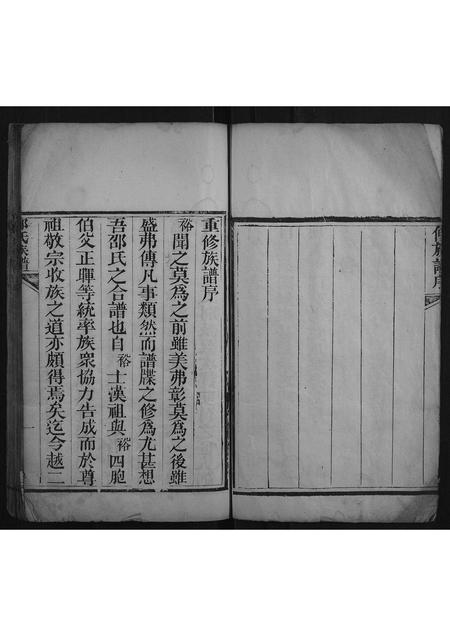 修族譜序
重修族譜序
裕聞之莫為之前雖美弗彰莫為之後雖
盛弗傳凡事類然而譜牒之修為尤甚想
吾邵氏之合譜也自裕士漢祖與裕四胞
伯父正暉等統率族衆協力告成而於尊
祖敬宗收族之道亦頗得焉矣迄今越二
邵氏族譜